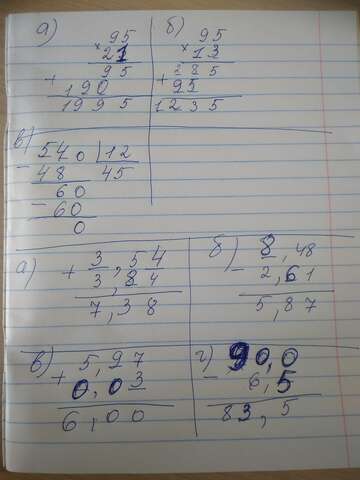 а) 95
× 21
95
+ 190
1995
б) 95
× 13
285
+ 95
1235
в) 540 | 12
- 48 45
60
- 60
0
а) + 3,54
3,84
7,38
б) 8,48
- 2,61
5,87
в) 5,97
+ 0,03
6,00
г) 90,0
- 6,5
83,5